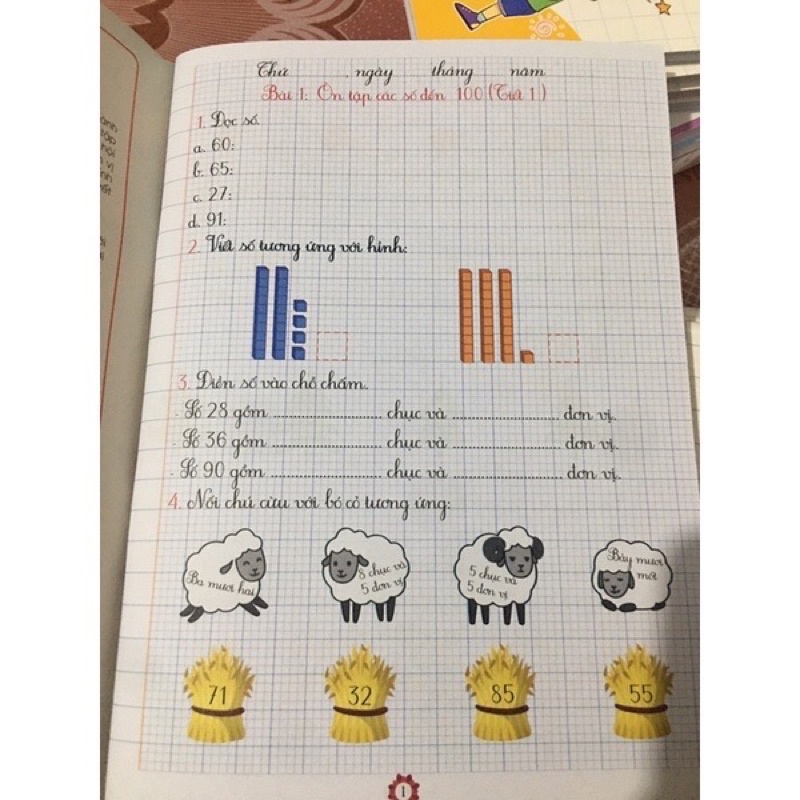 Thứ ngày tháng năm
Bài 1: Ôn tập các số đến 100 (Tiết 1)
1. Đọc số.
a. 60:
b. 65:
c. 27:
d. 91:
2. Viết số tương ứng với hình:
3. Điền số vào chỗ chấm.
- Số 28 gồm .......................... chục và .......................... đơn vị.
- Số 36 gồm .......................... chục và .......................... đơn vị.
- Số 90 gồm .......................... chục và .......................... đơn vị.
4. Nối chú cừu với bó cỏ tương ứng:
Ba mươi hai
8 chục và
5 đơn vị
5 chục và
5 đơn vị
Bảy mươi
mốt
71 32 85 55
1